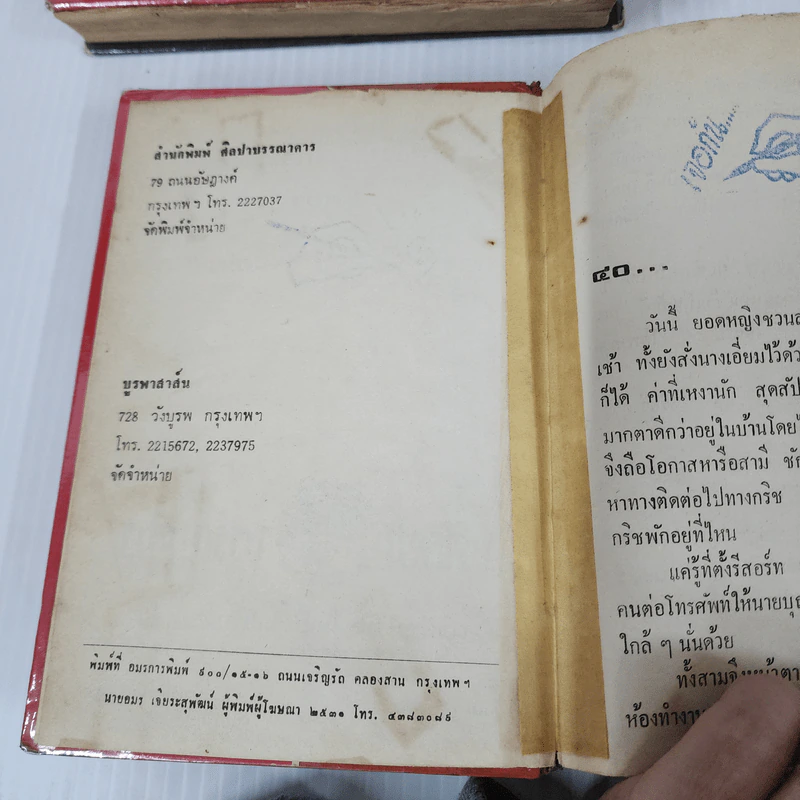 สำนักพิมพ์ ศิลปาบรรณาคาร
79 ถนนอัษฎางค์
กรุงเทพ ฯ โทร. 2227037
จัดพิมพ์จำหน่าย
บูรพาสาส์น
728 วังบูรพ กรุงเทพฯ
โทร. 2215672, 2237975
จัดจำหน่าย
พิมพ์ที่ อมรการพิมพ์ ๙๐๐/๑๕-๑๖ ถนนเจริญรัถ คลองสาน กรุงเทพ ฯ
นายอมร เจียระสุพัฒน์ ผู้พิมพ์ผู้โฆษณา ๒๕๓๑ โทร. ๔๓๘๓๐๘๙
เจอกัน....
๔๐...
วันนี้ ยอดหญิงชวน
เช้า ทั้งยังสั่งนางเอี่ยมไว้ด้ว
ก็ได้ ค่าที่เหงานัก สุดสัป
มากตาดีกว่าอยู่ในบ้านโดย
จึงถือโอกาสหารือสามี ชัก
หาทางติดต่อไปทางกริช
กริชพักอยู่ที่ไหน
แค่รู้ที่ตั้งรีสอร์ท
คนต่อโทรศัพท์ให้นายบุญ
ใกล้ ๆ นั่นด้วย
ทั้งสามจึงหน้าตา
ห้องทำงาน